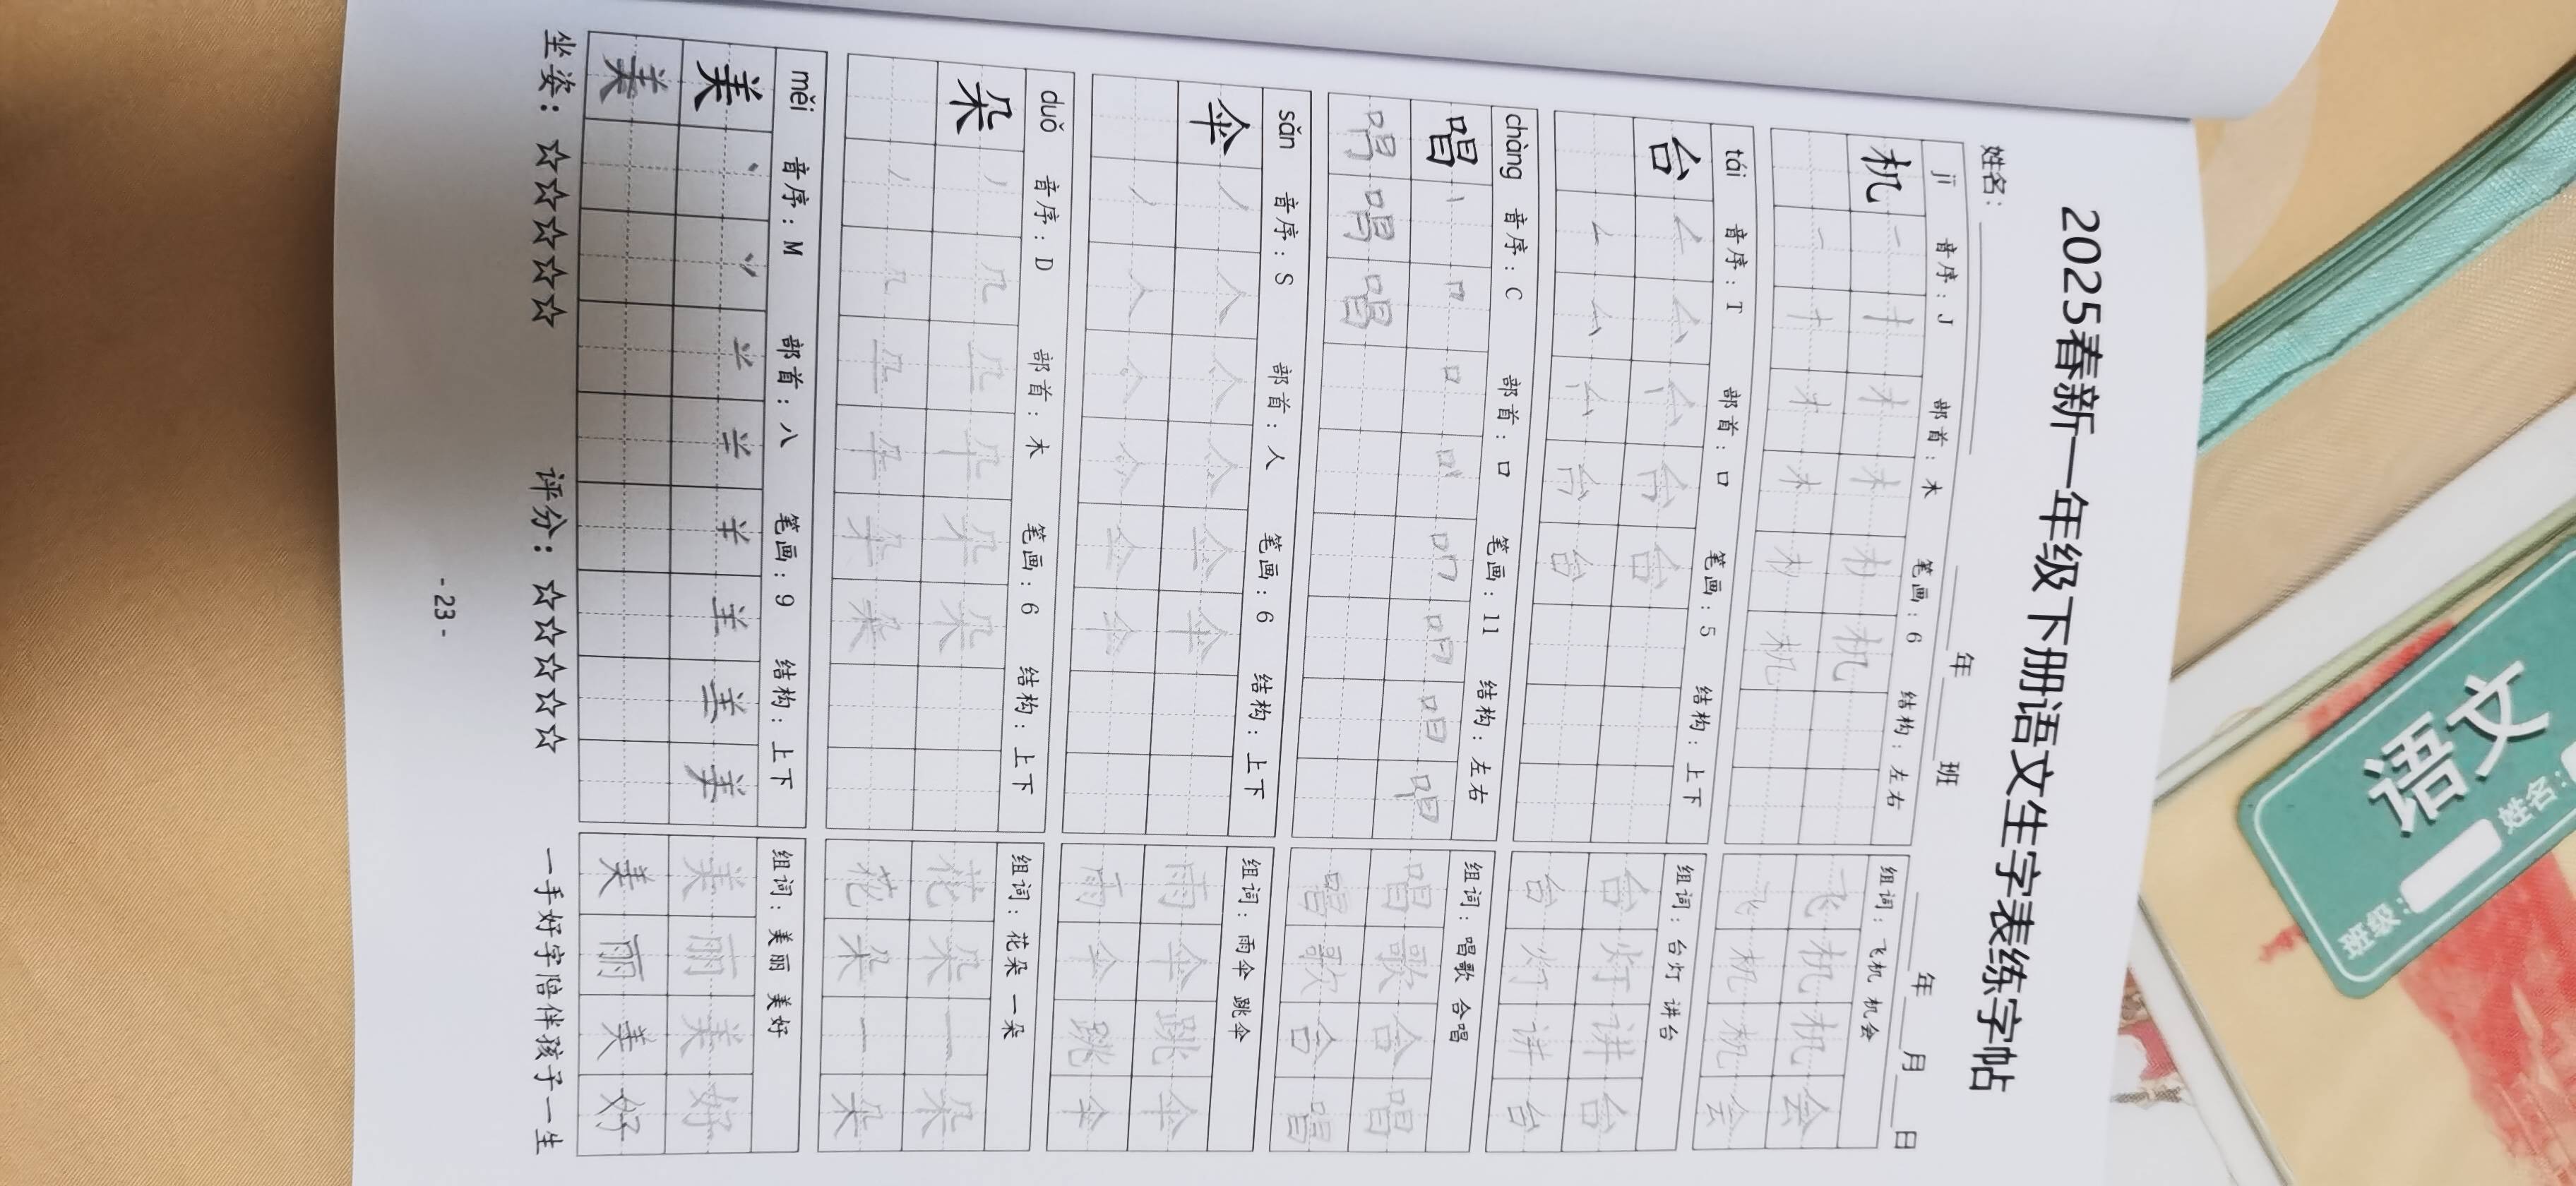 2025春新一年级下册语文生字表练字帖
姓名：
年 班
年 月 日
jī 音序：J 部首：木 笔画：6 结构：左右
组词：飞机 机会
机
飞机机会
飞机机会
tái 音序：T 部首：口 笔画：5 结构：上下
组词：台灯 讲台
台
台灯讲台
台灯讲台
chàng 音序：C 部首：口 笔画：11 结构：左右
组词：唱歌 合唱
唱
唱唱唱
唱歌合唱
唱歌合唱
sǎn 音序：S 部首：人 笔画：6 结构：上下
组词：雨伞 跳伞
伞
雨伞跳伞
雨伞跳伞
duǒ 音序：D 部首：木 笔画：6 结构：上下
组词：花朵 一朵
朵
花朵一朵
花朵一朵
měi 音序：M 部首：八 笔画：9 结构：上下
组词：美丽 美好
美
美
美丽美好
美丽美好
坐姿：☆☆☆☆☆ 评分：☆☆☆☆☆ 一手好字陪伴孩子一生
- 23 -
语文
姓名：
班级：